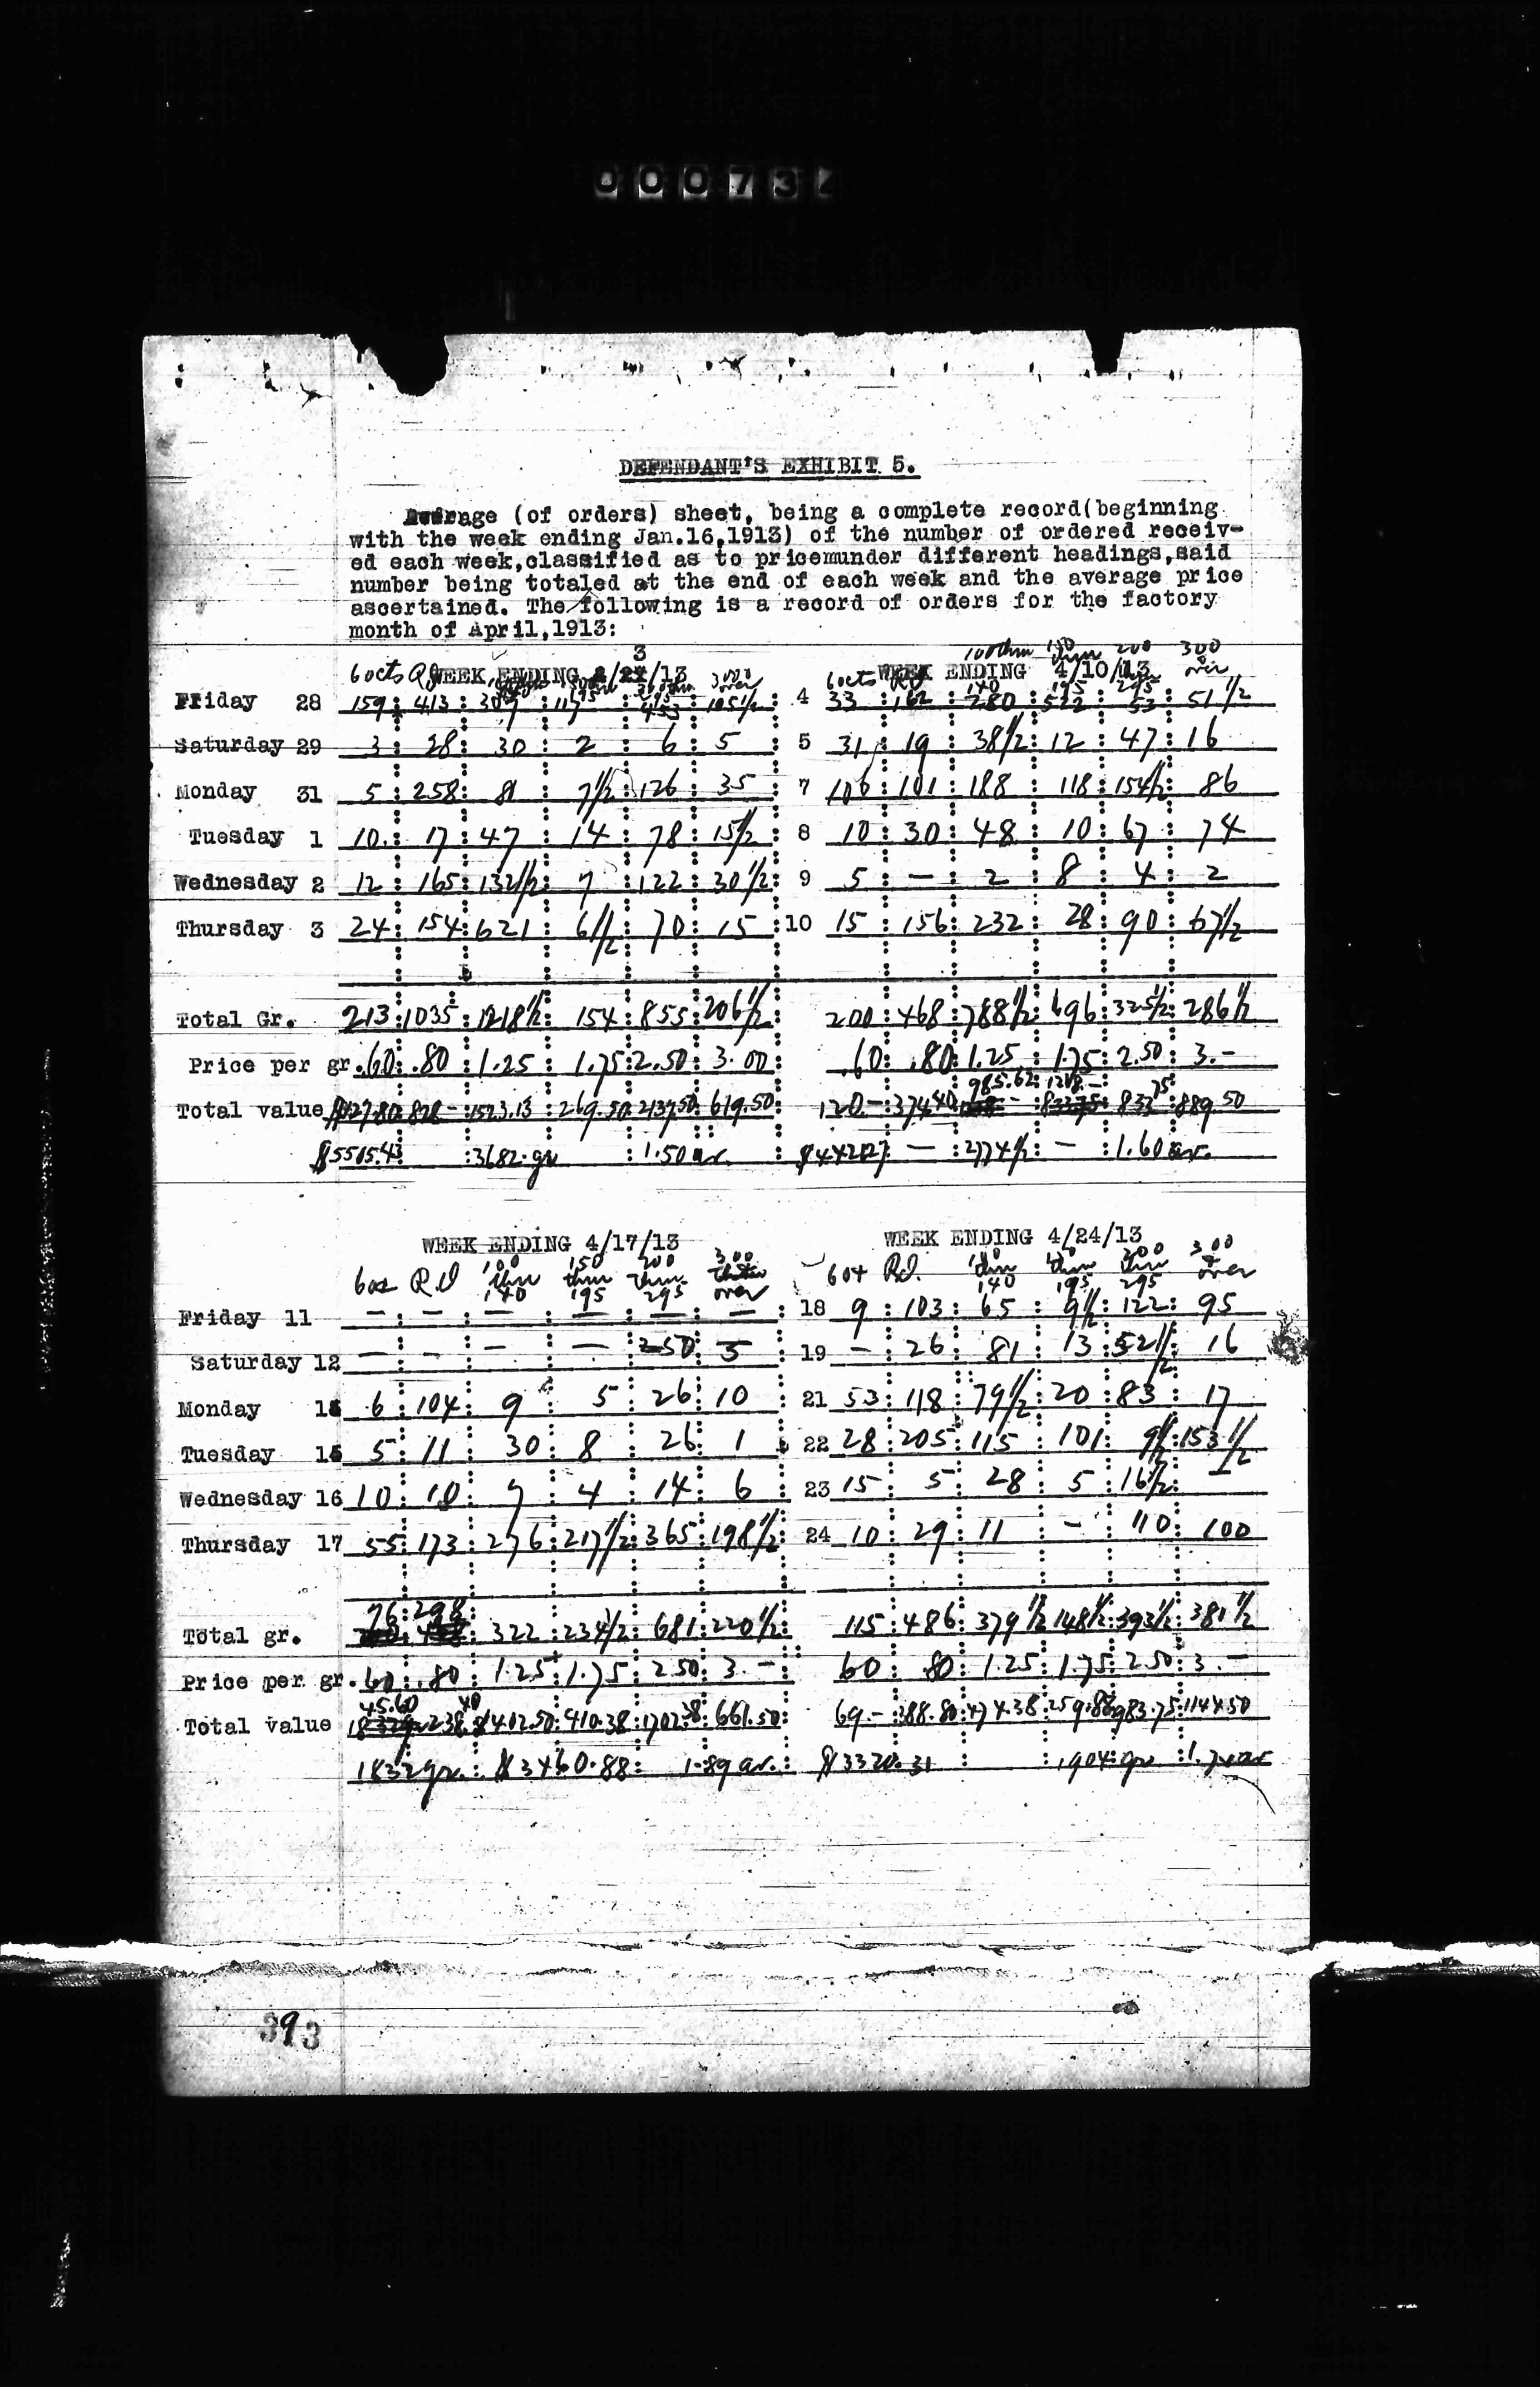 00073
DEFENDANT'S EXHIBIT 5.
Average (of orders) sheet, being a complete record(beginning
with the week ending Jan.16,1913) of the number of ordered receiv-
ed each week,classified as to pricemunder different headings,said
number being totaled at the end of each week and the average price
ascertained. The following is a record of orders for the factory
month of April,1913:
3
60cts Rd WEEK ENDING /13 300 over 60cts Rd WEEK ENDING 4/10/13 100 thru 140 150 thru 195 200 295 300 over
Friday 28 159 : 413 : 307 : 117 : 453 : 105 1/2 : 4 33 : 162 : 280 : 522 : 53 : 51 1/2
Saturday 29 3 : 28 : 30 : 2 : 6 : 5 : 5 31 : 19 : 38 1/2 : 12 : 47 : 16
Monday 31 5 : 258 : 81 : 7 1/2 : 126 : 35 : 7 106 : 101 : 188 : 118 : 154 1/2 : 86
Tuesday 1 10 : 17 : 47 : 14 : 78 : 15 1/2 : 8 10 : 30 : 48 : 10 : 67 : 74
Wednesday 2 12 : 165 : 132 1/2 : 7 : 122 : 30 1/2 : 9 5 : — : 2 : 8 : 4 : 2
Thursday 3 24 : 154 : 621 : 6 1/2 : 70 : 15 : 10 15 : 156 : 232 : 28 : 90 : 67 1/2
Total Gr. 213 : 1035 : 1218 1/2 : 154 : 855 : 206 1/2 : 200 : 468 : 788 1/2 : 696 : 325 1/2 : 286 1/2
Price per gr. .60 : .80 : 1.25 : 1.75 : 2.50 : 3.00 : .60 : .80 : 1.25 : 1.75 : 2.50 : 3.-
985.62 : 1218.-
Total value $127.80 : 828- : 1523.13 : 269.50 : 2137.50 : 619.50 : 120.- : 374.40 : 833 75 : 889.50
$5505.43 : 3682 gr : 1.50 av. : $4421.27 — : 2774 1/2 : — : 1.60 av.
WEEK ENDING 4/17/13 WEEK ENDING 4/24/13
60s Rd 100 thru 140 150 thru 195 200 thru 295 300 over 60s Rd. 100 thru 140 150 thru 195 200 thru 295 300 & over
Friday 11 — : — : — : — : — : — : 18 9 : 103 : 65 : 9 1/2 : 122 : 95
Saturday 12 — : — : — : — : 250 : 5 : 19 — : 26 : 81 : 13 : 52 1/2 : 16
Monday 6 : 104 : 9 : 5 : 26 : 10 : 21 53 : 118 : 79 1/2 : 20 : 83 : 17
Tuesday 15 5 : 11 : 30 : 8 : 26 : 1 : 22 28 : 205 : 115 : 101 : 9 1/2 : 153 1/2
Wednesday 16 10 : 10 : 7 : 4 : 14 : 6 : 23 15 : 5 : 28 : 5 : 16 1/2 : —
Thursday 17 55 : 173 : 276 : 217 1/2 : 365 : 198 1/2 : 24 10 : 29 : 11 : - : 110 : 100
76 : 298
Total gr. 322 : 234 1/2 : 681 : 220 1/2 : 115 : 486 : 379 1/2 : 148 1/2 : 393 1/2 : 381 1/2
Price per gr. .60 : .80 : 1.25 : 1.75 : 2.50 : 3.- : 60 : .80 : 1.25 : 1.75 : 2.50 : 3.-
45.60
Total value 238.40 : 402.50 : 410.38 : 1702.38 : 661.50 : 69.- : 388.80 : 474.38 : 259.88 : 983.75 : 1144.50
1832 gr. : $3460.88 : 1.89 av. : $3320.31 : 1904 gr. : av
393